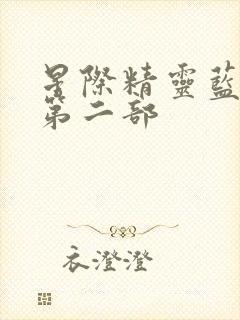 星際精靈藍
第二部
衣澄澄